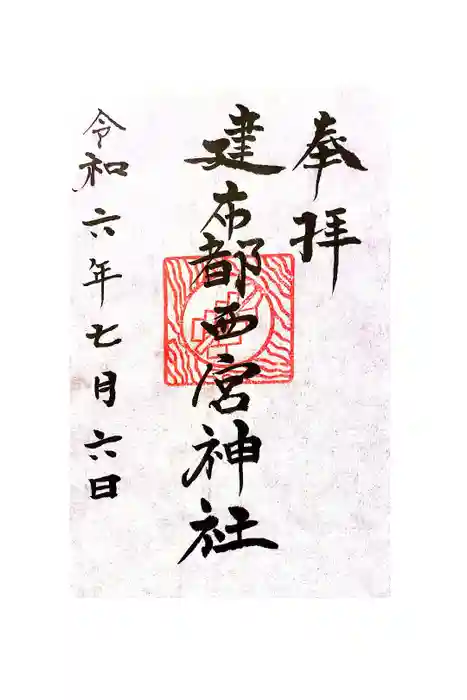 奉拝
建布都西宮神社
令和六年七月六日